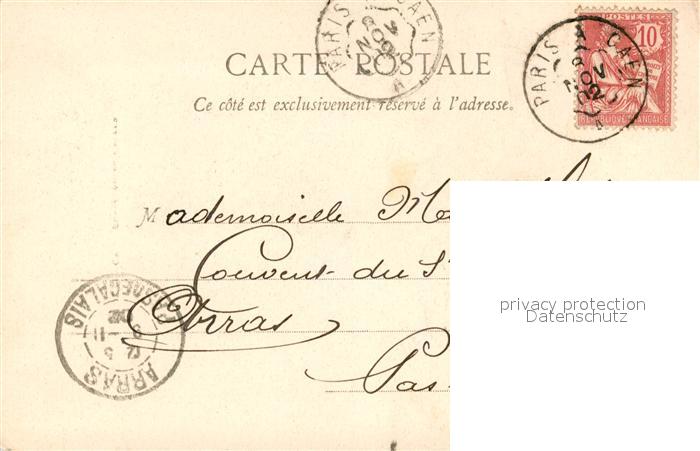 PARIS A CAEN
8
NOV
02
POSTES
10
RÉPUBLIQUE FRANÇAISE
PARIS CAEN
8
NOV
CARTE POSTALE
Ce côté est exclusivement réservé à l'adresse.
Mademoiselle
Couvent du S
Arras
Pas
privacy protection
Datenschutz
ARRAS
PAS-DE-CALAIS
02